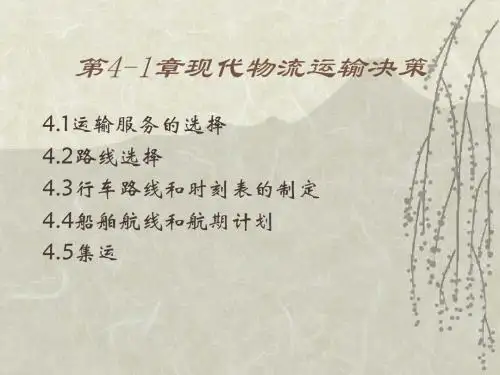 第4-1章现代物流运输决策
4.1运输服务的选择
4.2路线选择
4.3行车路线和时刻表的制定
4.4船舶航线和航期计划
4.5集运